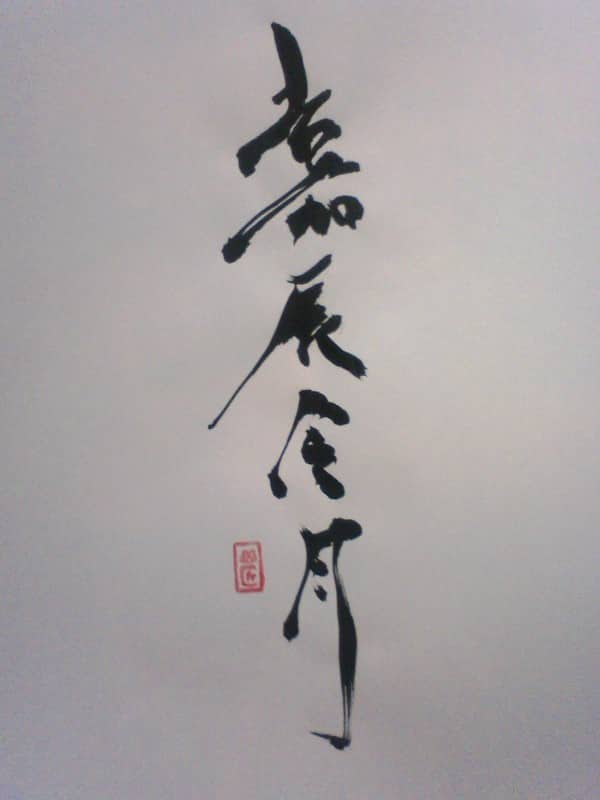 嘉辰令月